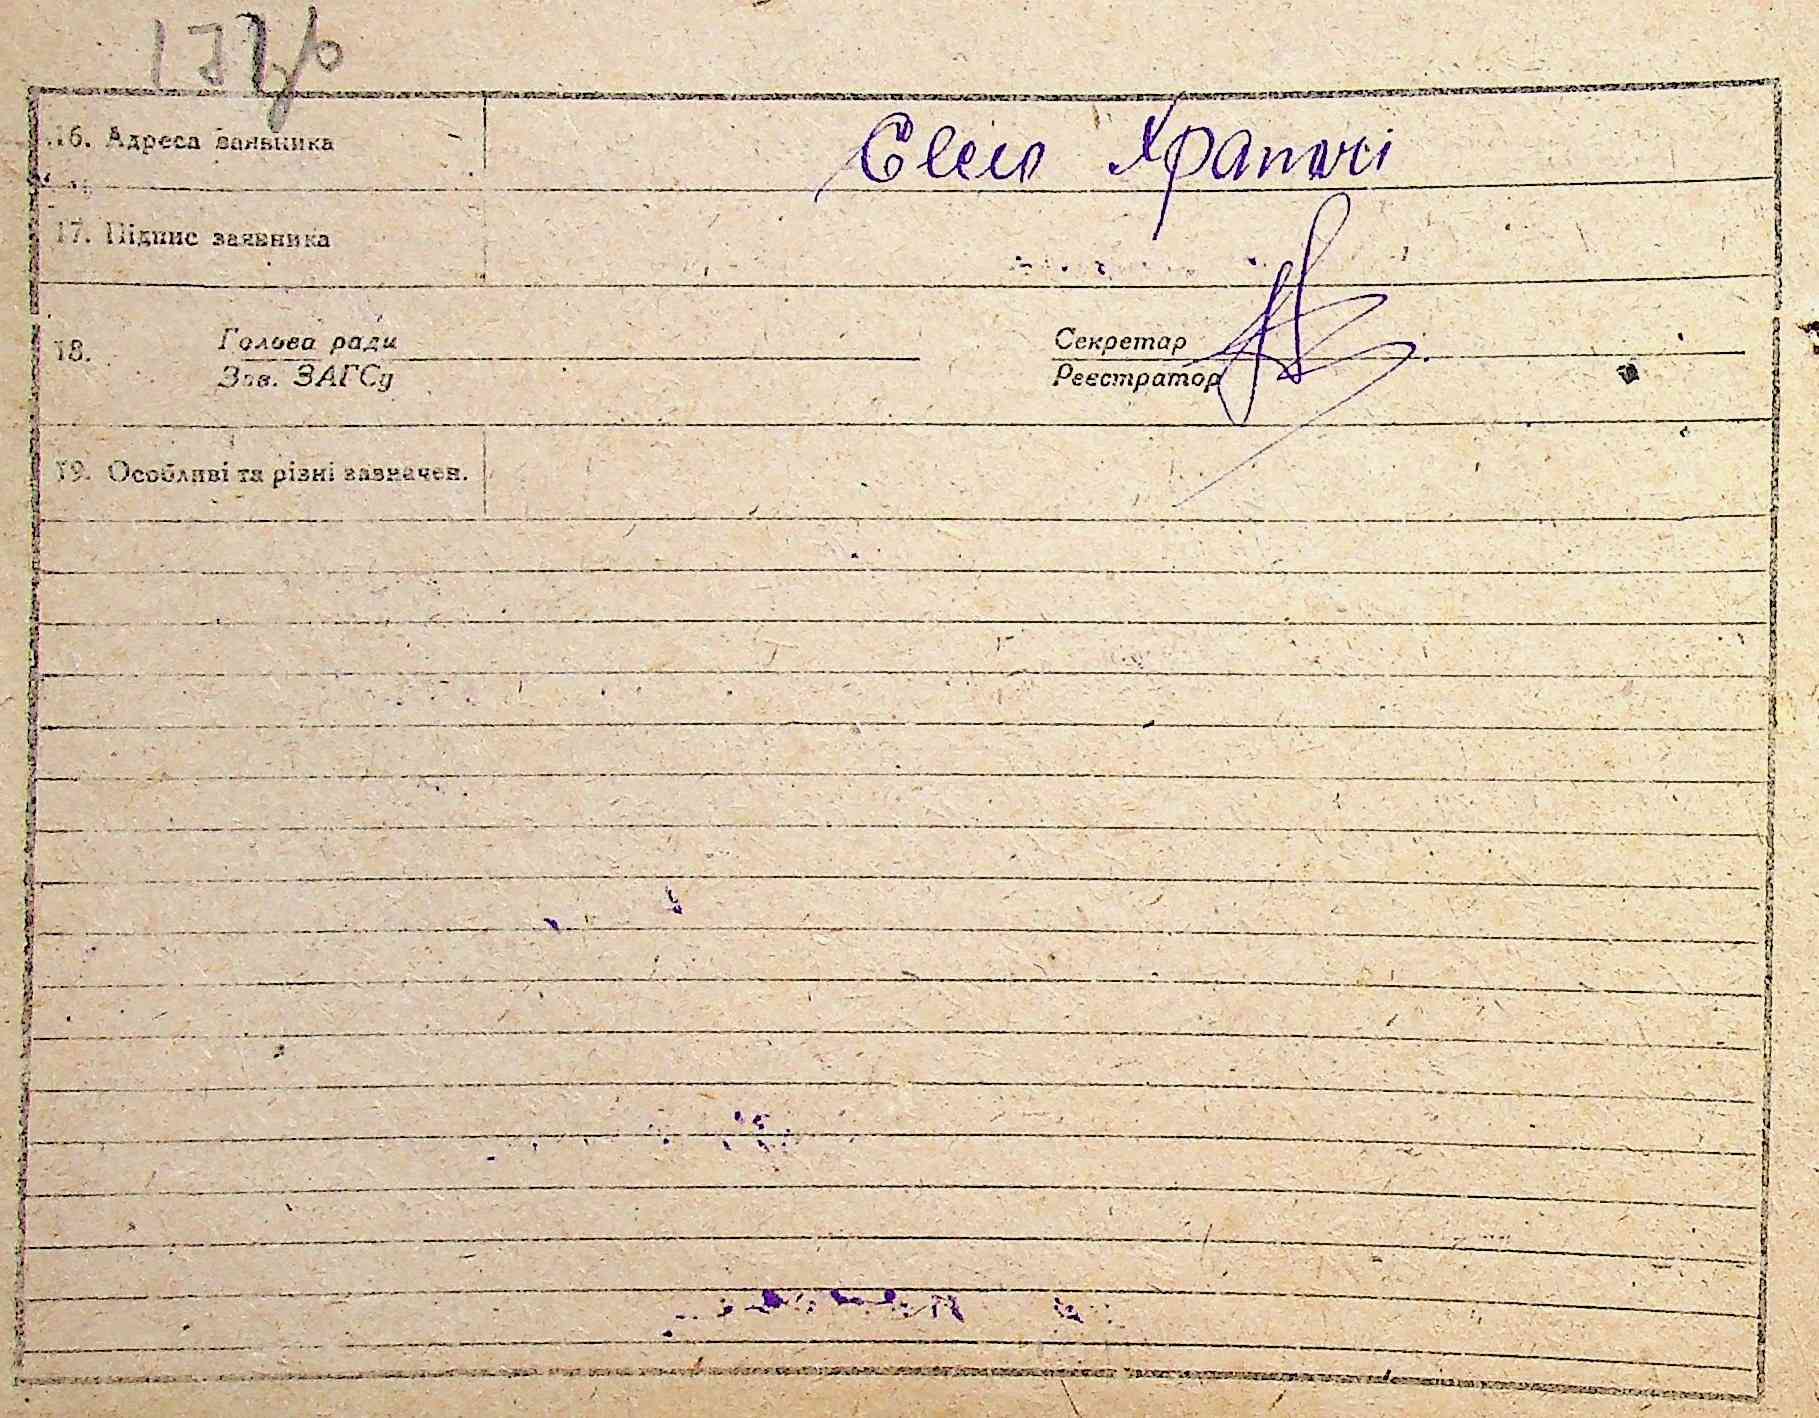 16. Адреса заявника Село Храпачі
17. Підпис заявника
18. Голова ради Секретар
Зав. ЗАГСу Реєстратор
19. Особливі та різні зазначен.